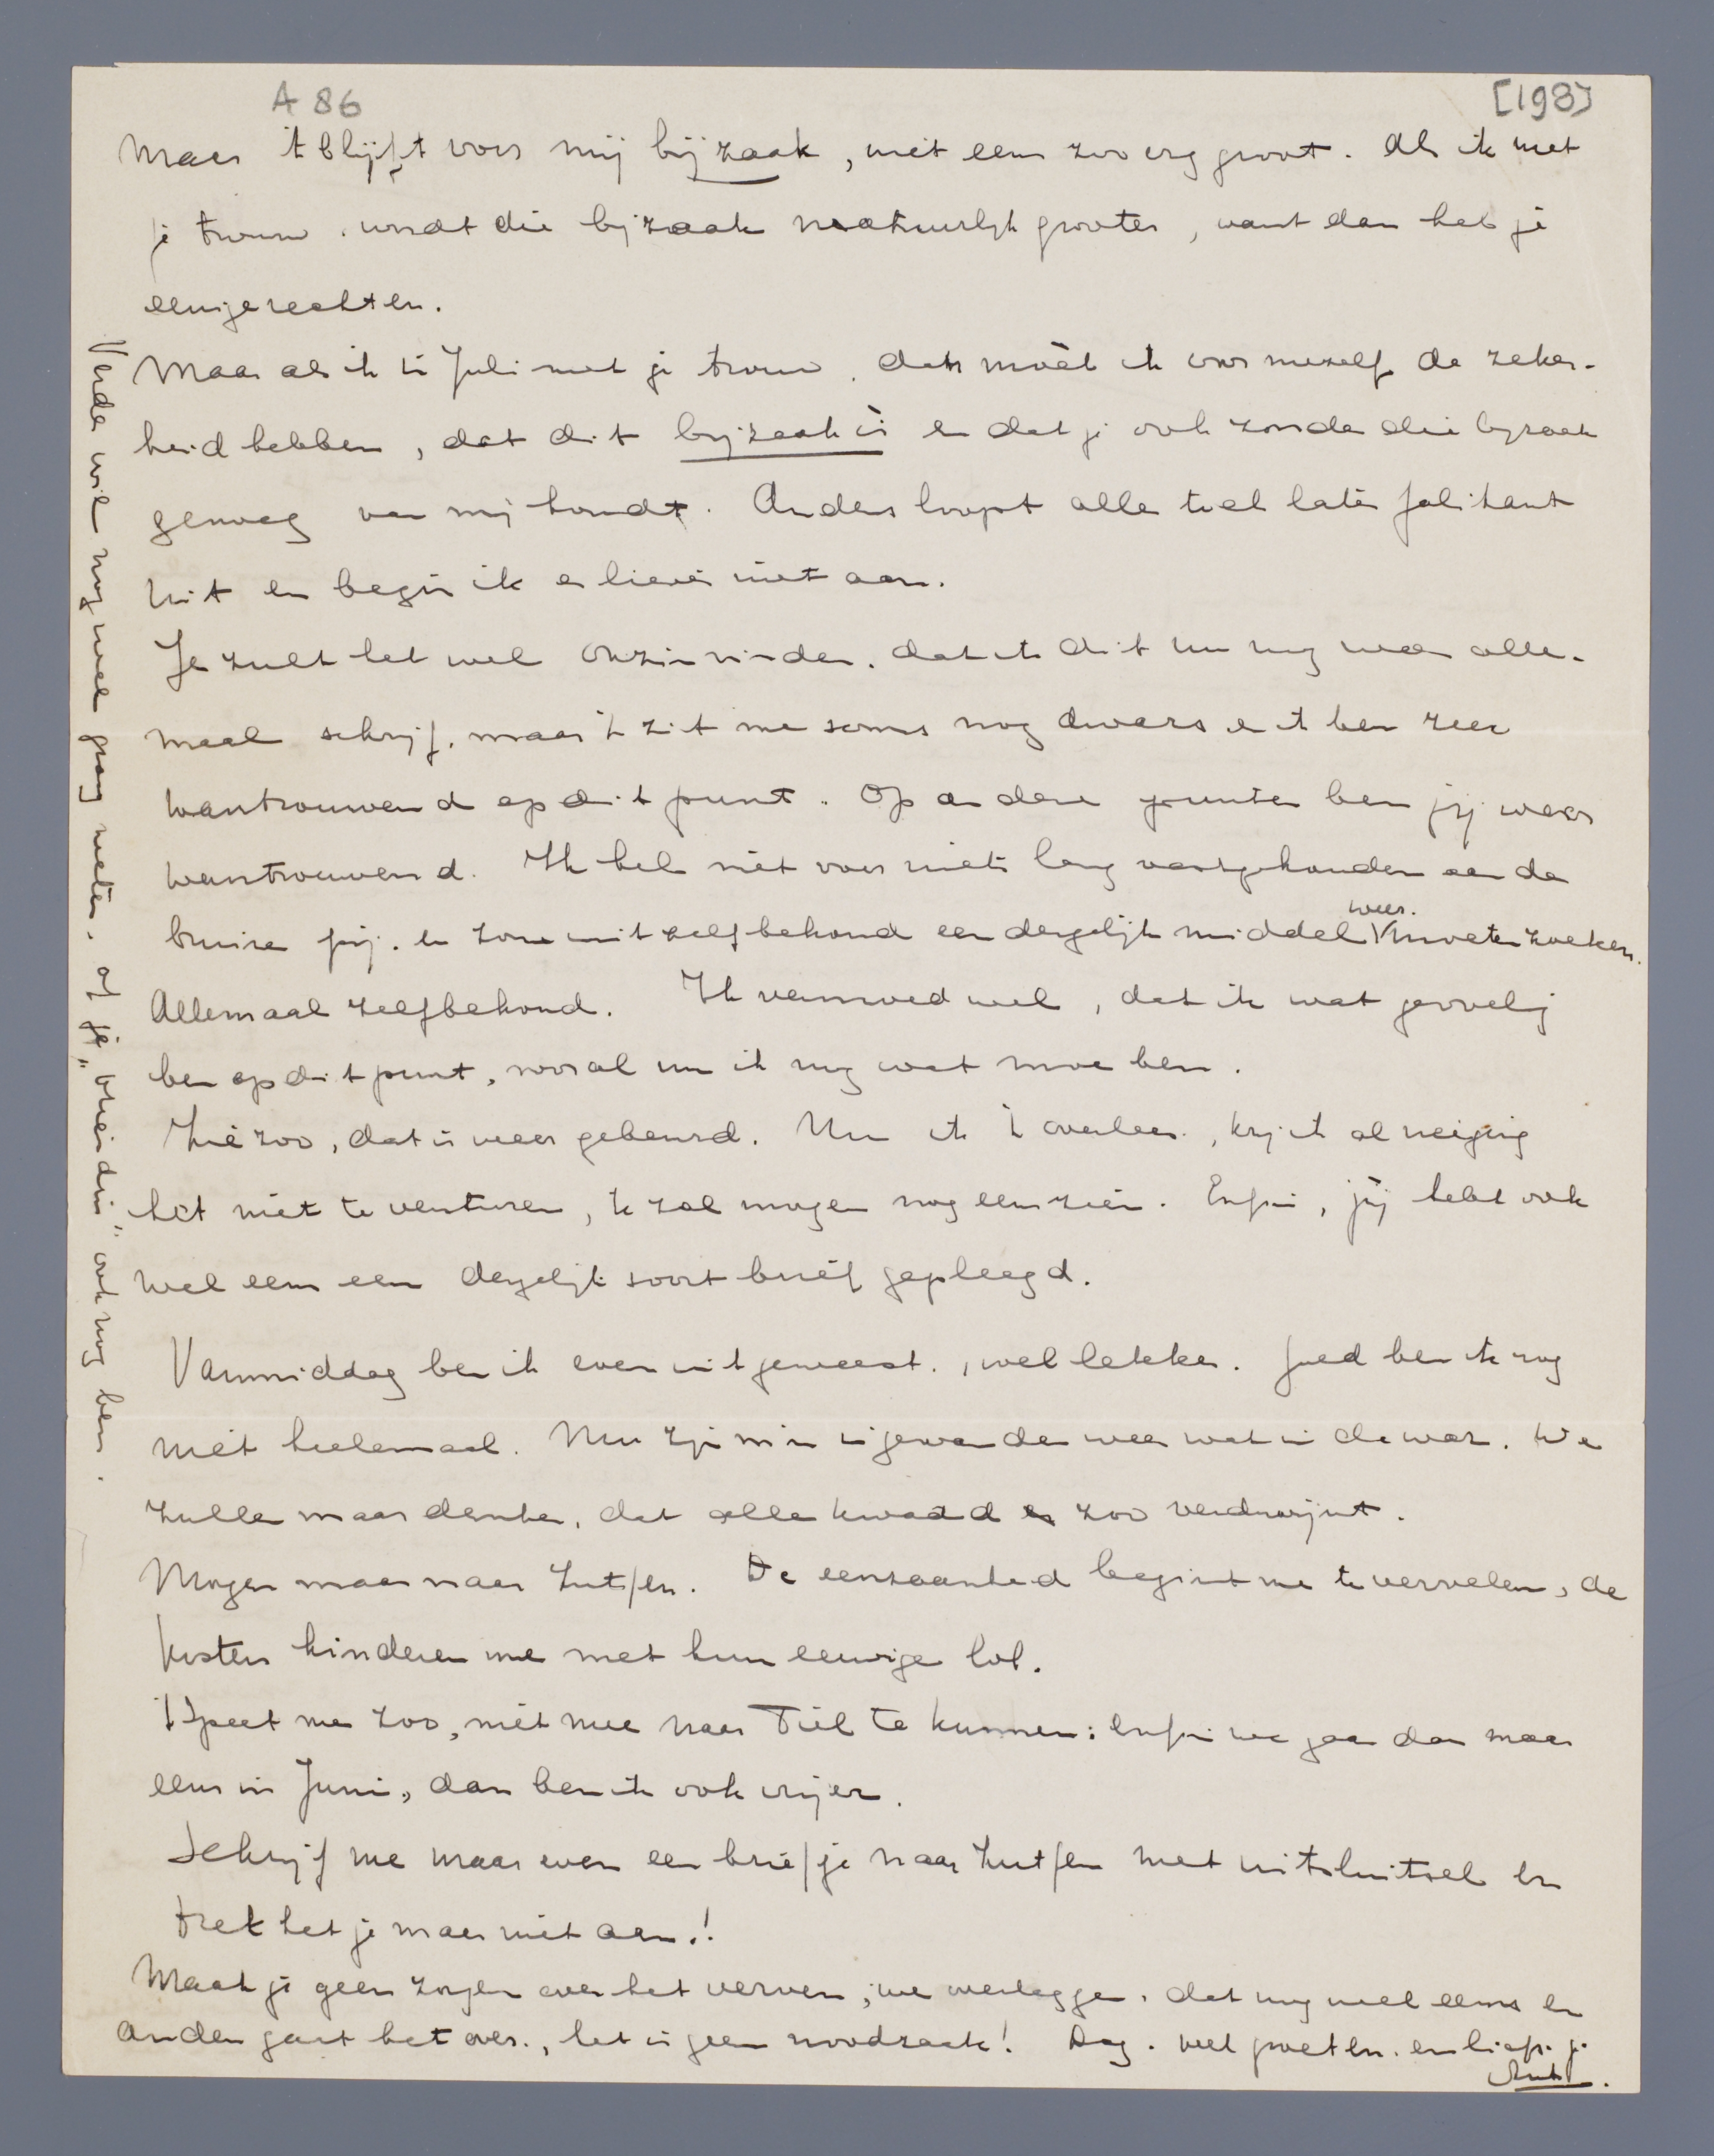 A 86
[198]
Maar 't blijft voor mij bijzaak, niet eens zoo erg groot. Als ik met
je trouw, wordt die bijzaak natuurlijk grooter, want dan heb je
eenige rechten.
Maar als ik in Juli met je trouw, dan móet ik voor mezelf de zeker-
heid hebben, dat dit bijzaak is en dat je ook zonder die bijzaak
genoeg van mij houdt. Anders loopt alles toch later faliekant
uit en begin ik er liever niet aan.
Je zult het wel onzin vinden, dat ik dit nu nog weer alle-
maal schrijf, maar 't zit me soms nog dwars en ik ben zeer
wantrouwend op dit punt. Op andere punten ben jij weer
wantrouwend. Ik heb niet voor niets lang vastgehouden aan de
bruine pij, en zou uit zelfbehoud een dergelijk middel weer moeten zoeken.
Allemaal zelfbehoud. Ik vermoed wel, dat ik wat gevoelig
ben op dit punt, vooral nu ik nog wat moe ben.
Zie zoo, dat is weer gebeurd. Nu ik 't overlees, krijg ik al neiging
het niet te versturen, ik zal morgen nog eens zien. Enfin, jij hebt ook
wel eens een dergelijk soort brief gepleegd.
Vanmiddag ben ik even uit geweest, wel lekker. Goed ben ik nog
niet heelemaal. Nu zijn m'n ingewanden weer wat in de war. We
zullen maar denken, dat alle kwaad zoo verdwijnt.
Morgen maar naar Zutfen. De eenzaamheid begint me te vervelen, de
zusters hinderen me met hun eeuwige lol.
't Speet me zoo, niet mee naar Tiel te kunnen: enfin we gaan dan maar
eens in Juni, dan ben ik ook vrijer.
Schrijf me maar even een briefje naar Zutfen met uitsluitsel en
trek het je maar niet aan.!
Maak je geen zorgen over het verven, we overleggen dat nog wel eens en
anders gaat het over, het is geen noodzaak! Dag. veel groeten. en liefs. je
Verder wil ik nog wel graag weten, of je "vriendin" ook nog ben.